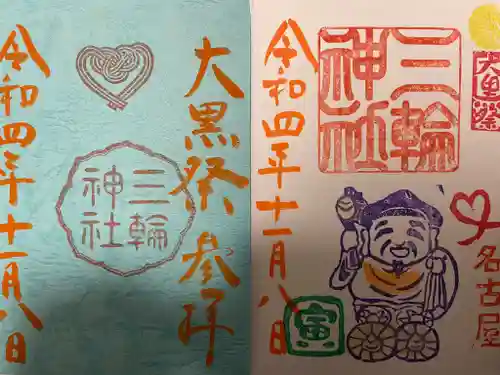 大黒祭
名古屋
三輪
神社
寅
令和四年十一月八日
大黒祭 参拝
三輪
神社
令和四年十一月八日